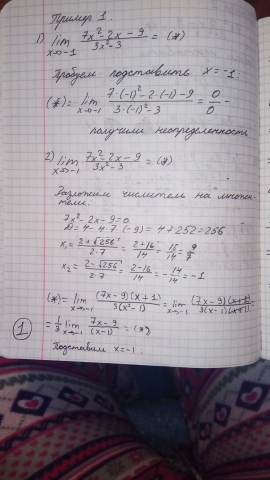 Пример 1.
1) lim x→-1 (7x²-2x-9)/(3x²-3) = (*)
Пробуем подставить x=-1:
(*) = lim x→-1 (7·(-1)²-2·(-1)-9)/(3·(-1)²-3) = 0/0 -
получили неопределенность
2) lim x→-1 (7x²-2x-9)/(3x²-3) = (*)
Разложим числитель на множи-
тели:
7x²-2x-9=0
D=4-4·7·(-9)=4+252=256
x₁=(2+√256)/(2·7)=(2+16)/14=18/14=9/7
x₂=(2-√256)/(2·7)=(2-16)/14=-14/14=-1
(*)= lim x→-1 ((7x-9)(x+1))/(3(x²-1)) = lim x→-1 ((7x-9)(x+1))/(3(x-1)(x+1)) =
1
= 1/3 lim x→-1 (7x-9)/(x-1) = (*)
Подставим x=-1: